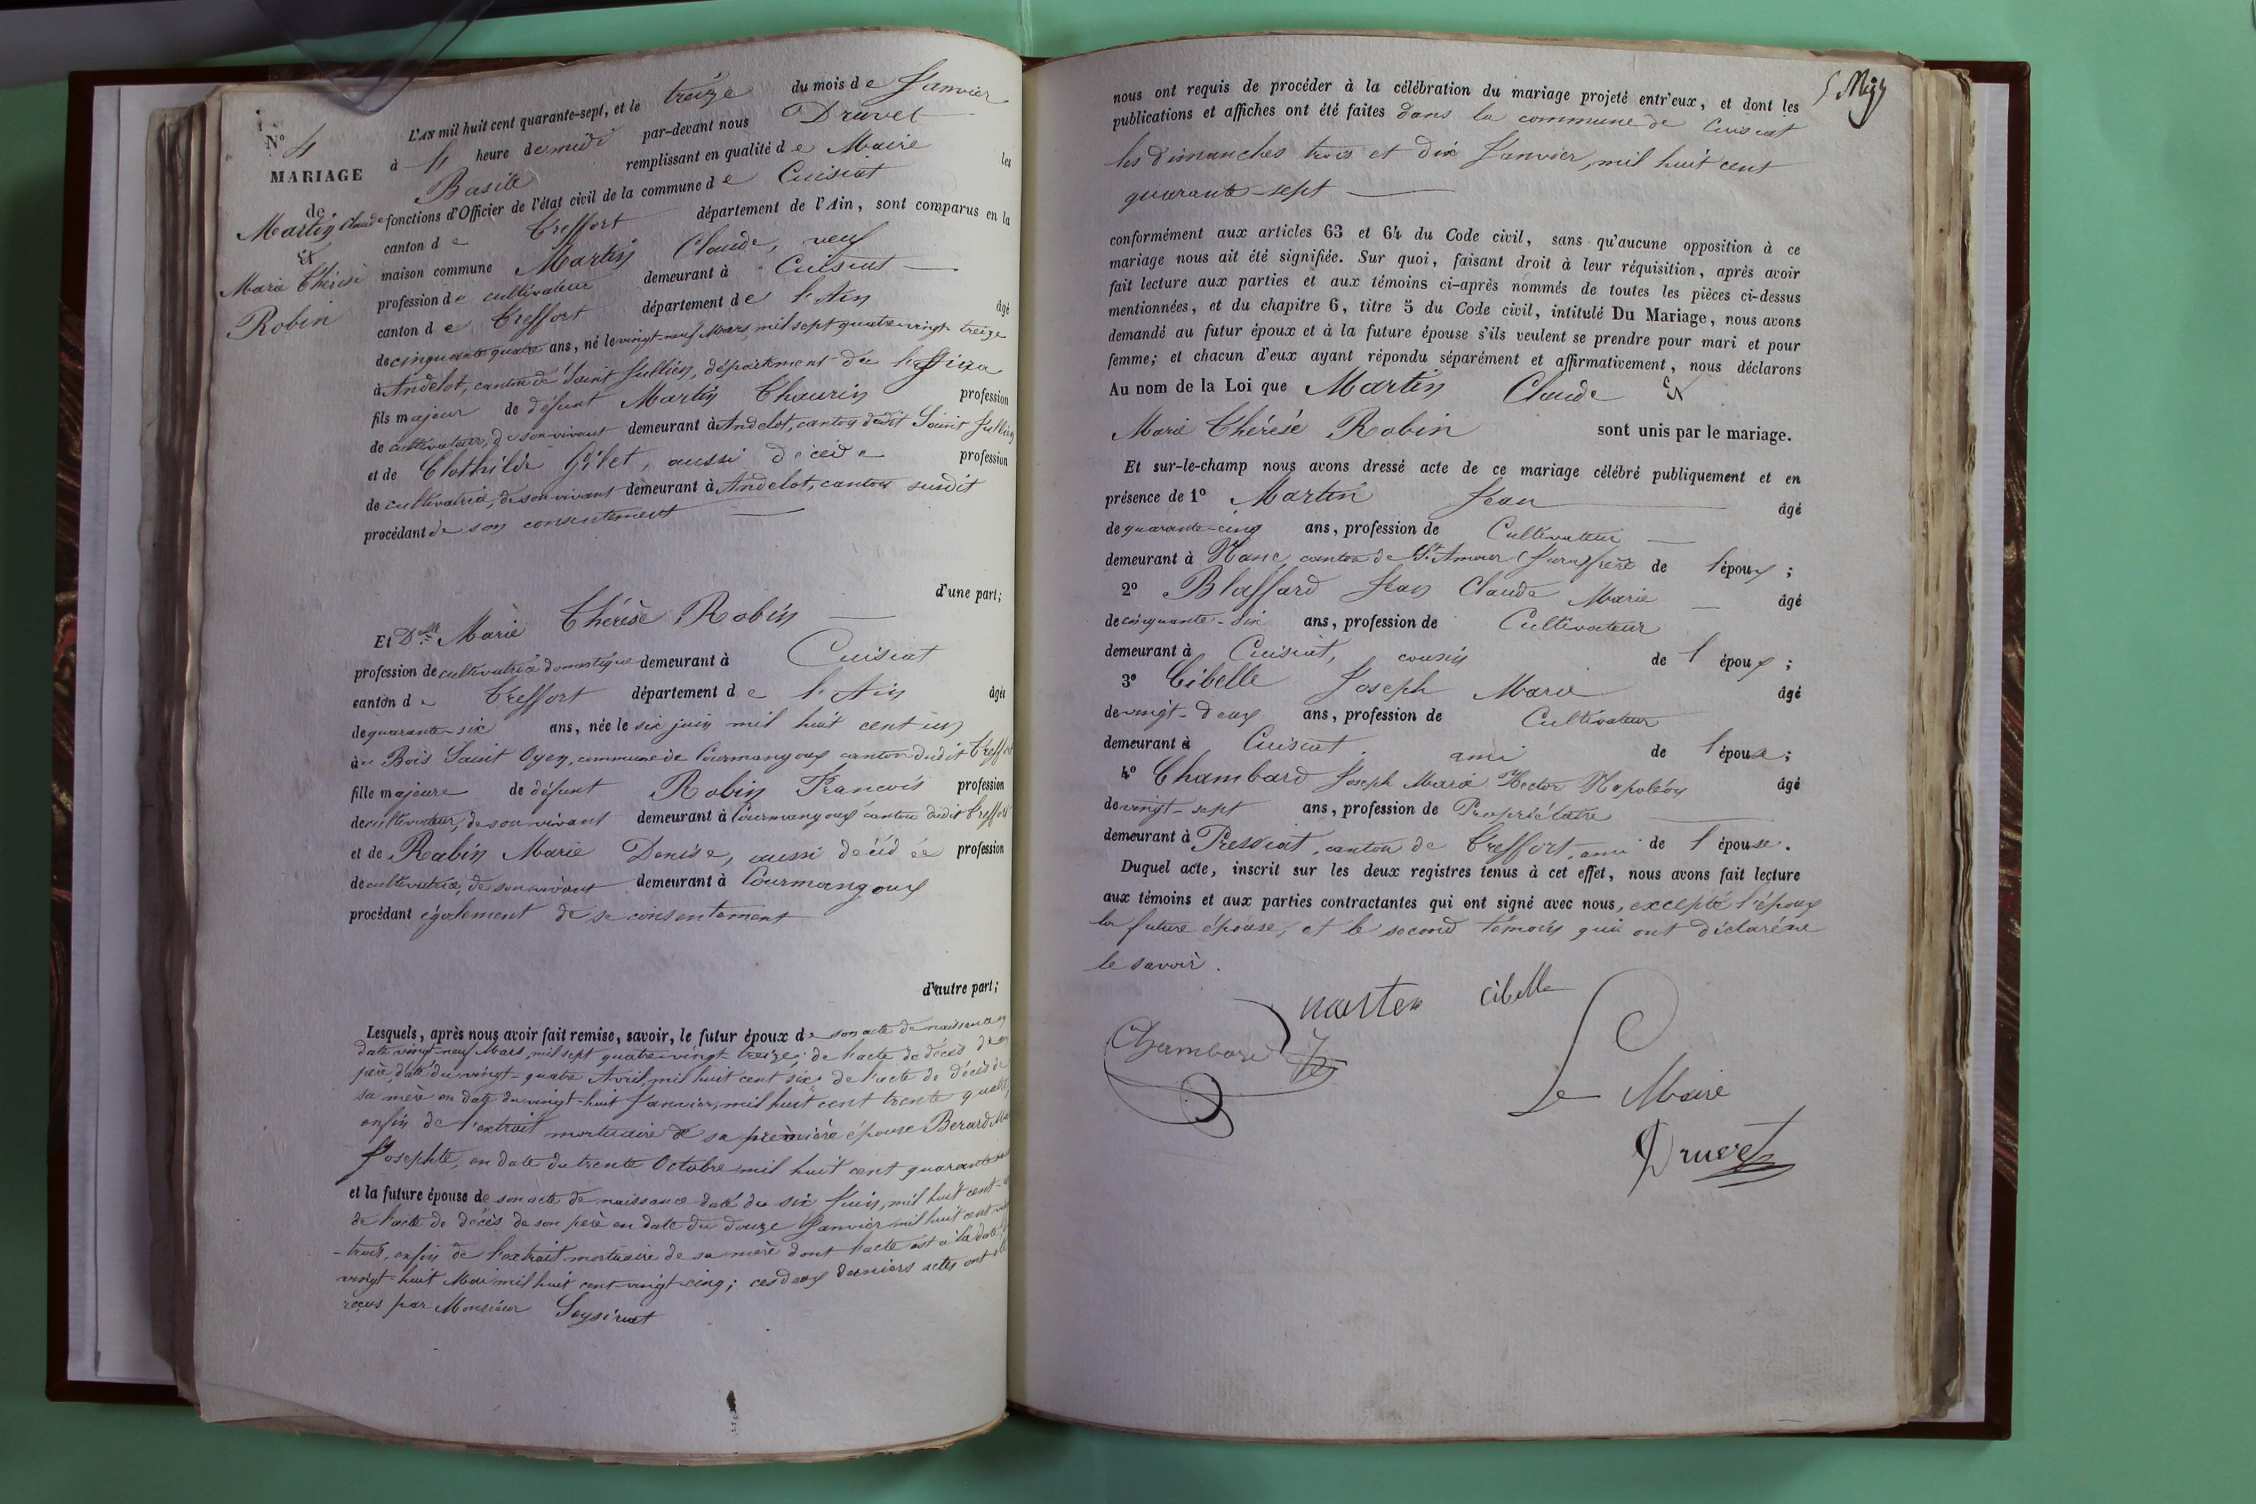 N° 4
MARIAGE
de
Martin Claude
Et
Marie Thérèse
Robin
L'AN mil huit cent quarante-sept, et le treize du mois de Janvier
à 4 heure de midi par-devant nous Druvet
Basile remplissant en qualité de Maire les
fonctions d'Officier de l'état civil de la commune de Cuisiat
canton de Treffort département de l'Ain, sont comparus en la
maison commune Martin Claude, veuf
profession de cultivateur demeurant à Cuisiat
canton de Treffort département de l'Ain âgé
de cinquante quatre ans, né le vingt-neuf Mars, mil sept quatre vingt treize
à Andelot, canton de Saint Jullien, département de
fils majeur de défunt Martin Thaurin profession
de cultivateur, de son vivant demeurant à Andelot, canton dudit Saint Jullien
et de Clothilde Gilet, aussi décédée profession
de cultivatrice, de son vivant demeurant à Andelot, canton susdit
procédant de son consentement
d'une part;
Et Dlle Marie Thérèse Robin
profession de cultivatrice domestique demeurant à Cuisiat
canton de Treffort département de l'Ain âgée
de quarante-six ans, née le six juin mil huit cent un
au Bois Saint Oyen, commune de Courmangoux canton dudit Treffort
fille majeure de défunt Robin Francois profession
de cultivateur, de son vivant demeurant à Courmangoux canton dudit Treffort
et de Rabin Marie Denise, aussi décédée profession
de cultivatrice, de son vivant demeurant à Courmangoux
procédant également de se consentement
d'autre part;
Lesquels, après nous avoir fait remise, savoir, le futur époux de son acte de naissance en
date vingt-neuf Mars, mil sept quatre vingt treize; de l'acte de décès de son
père, daté du vingt-quatre Avril, mil huit cent six; de l'acte de décès de
sa mère en date du vingt-huit Janvier, mil huit cent trente quatre,
enfin de l'extrait mortuaire de sa première épouse Berard
Josephte, en date du trente Octobre mil huit cent quarante
et la future épouse de son acte de naissance daté du six Juin, mil huit cent
de l'acte de décès de son père en date du douze Janvier mil huit cent
-trois, enfin de l'extrait mortuaire de sa mère dont l'acte est à la date
vingt-huit Mai mil huit cent-vingt-cinq; ces deux derniers actes ont été
reçus par Monsieur Soysiruet
5 Mgy
nous ont requis de procéder à la célébration du mariage projeté entr'eux, et dont les
publications et affiches ont été faites dans la commune de Cuisiat
les dimanches trois et dix Janvier, mil huit cent
quarante-sept
conformément aux articles 63 et 64 du Code civil, sans qu'aucune opposition à ce
mariage nous ait été signifiée. Sur quoi, faisant droit à leur réquisition, après avoir
fait lecture aux parties et aux témoins ci-après nommés de toutes les pièces ci-dessus
mentionnées, et du chapitre 6, titre 5 du Code civil, intitulé Du Mariage, nous avons
demandé au futur époux et à la future épouse s'ils veulent se prendre pour mari et pour
femme; et chacun d'eux ayant répondu séparément et affirmativement, nous déclarons
Au nom de la Loi que Martin Claude Et
Marie Thérèse Robin sont unis par le mariage.
Et sur-le-champ nous avons dressé acte de ce mariage célébré publiquement et en
présence de 1° Martin Jean âgé
de quarante-cinq ans, profession de Cultivateur
demeurant à Nanc, canton de St Amour (Jura) frère de l'époux;
2° Blaffard Jean Claude Marie âgé
de cinquante-six ans, profession de Cultivateur
demeurant à Cuisiat, cousin de l'époux;
3° Cibelle Joseph Marie âgé
de vingt-deux ans, profession de Cultivateur
demeurant à Cuisiat ami de l'épouse;
4° Chambard Joseph Marie Hector Napoléon âgé
de vingt-sept ans, profession de Propriétaire
demeurant à Pressiat, canton de Treffort, ami de l'épouse.
Duquel acte, inscrit sur les deux registres tenus à cet effet, nous avons fait lecture
aux témoins et aux parties contractantes qui ont signé avec nous, excepté l'époux
la future épouse, et le second témoin qui ont déclaré ne
le savoir.
marten Cibelle
Chambard
Le Maire
Druvet